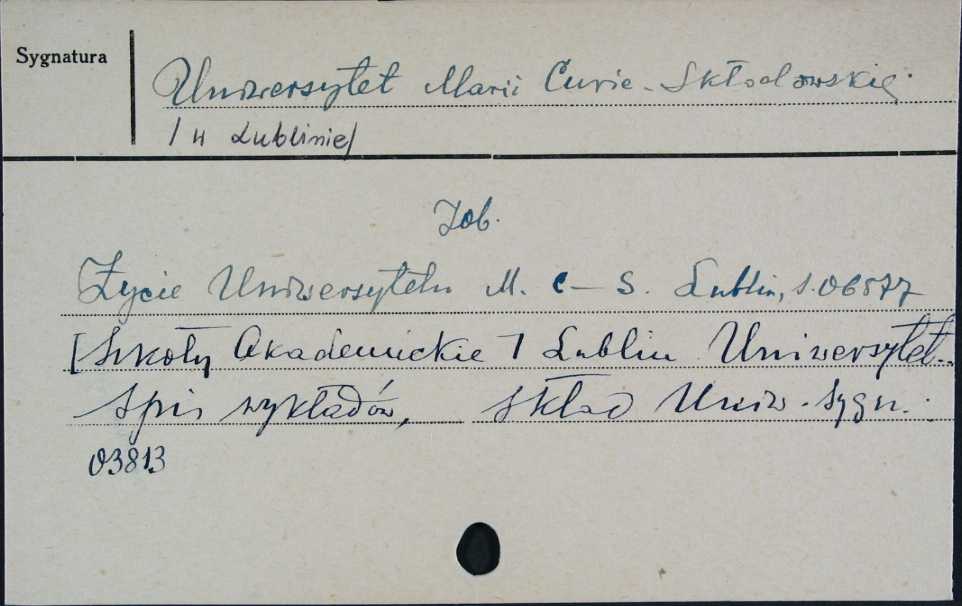 Sygnatura
Uniwersytet Marii Curie-Skłodowskiej
/ w Lublinie/
Zob.
Życie Uniwersytetu M. C-S. Lublin, s. 06577
[Szkoły Akademickie] Lublin Uniwersytet..
Spis wykładów, Skład Uniw. Sygn.
03813